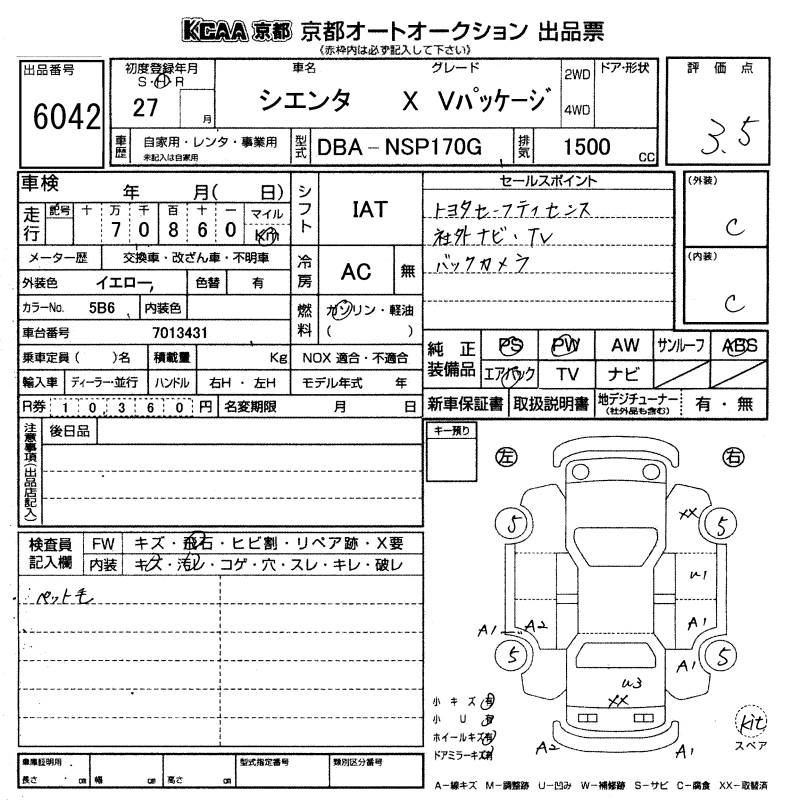 KCAA 京都 京都オートオークション 出品票
《赤枠内は必ず記入して下さい》
出品番号
6042
初度登録年月
S・H・R
27 月
車名 グレード
シエンタ X Vパッケージ
2WD
4WD
ドア・形状
評価点
3.5
車歴
自家用・レンタ・事業用
未記入は自家用
型式
DBA-NSP170G
排気
1500 CC
車検 年 月( 日)
走行
記号 十 万 千 百 十 一
7 0 8 6 0
マイル
Km
メーター歴 交換車・改ざん車・不明車
外装色 イエロー, 色替 有
カラーNo. 5B6 内装色
車台番号 7013431
乗車定員( )名 積載量 Kg
輸入車 ディーラー・並行 ハンドル 右H・左H
R券 10,360円 名変期限 月 日
シフト
IAT
冷房
AC 無
燃料
ガソリン・軽油
( )
NOX 適合・不適合
モデル年式 年
セールスポイント
トヨタセーフティセンス
社外ナビ・TV
バックカメラ
(外装)
C
(内装)
C
純正装備品
PS PW AW サンルーフ ABS
エアバック TV ナビ
新車保証書 取扱説明書 地デジチューナー(社外品も含む) 有・無
注意事項(出品店記入)
後日品
キー預り
左
右
検査員記入欄
FW キズ・飛石・ヒビ割・リペア跡・X要
内装 キズ・汚レ・コゲ・穴・スレ・キレ・破レ
ペット毛
5
XX
5
U1
A1
A2
A1
A1
5
5
U3
XX
A2
A1
小キズ有
小U有
ホイールキズ有
ドアミラーキズ有
kit
スペア
車庫証明用
長さ cm 幅 cm 高さ cm
型式指定番号
類別区分番号
A-線キズ M-調整跡 U-凹み W-補修跡 S-サビ C-腐食 XX-取替済